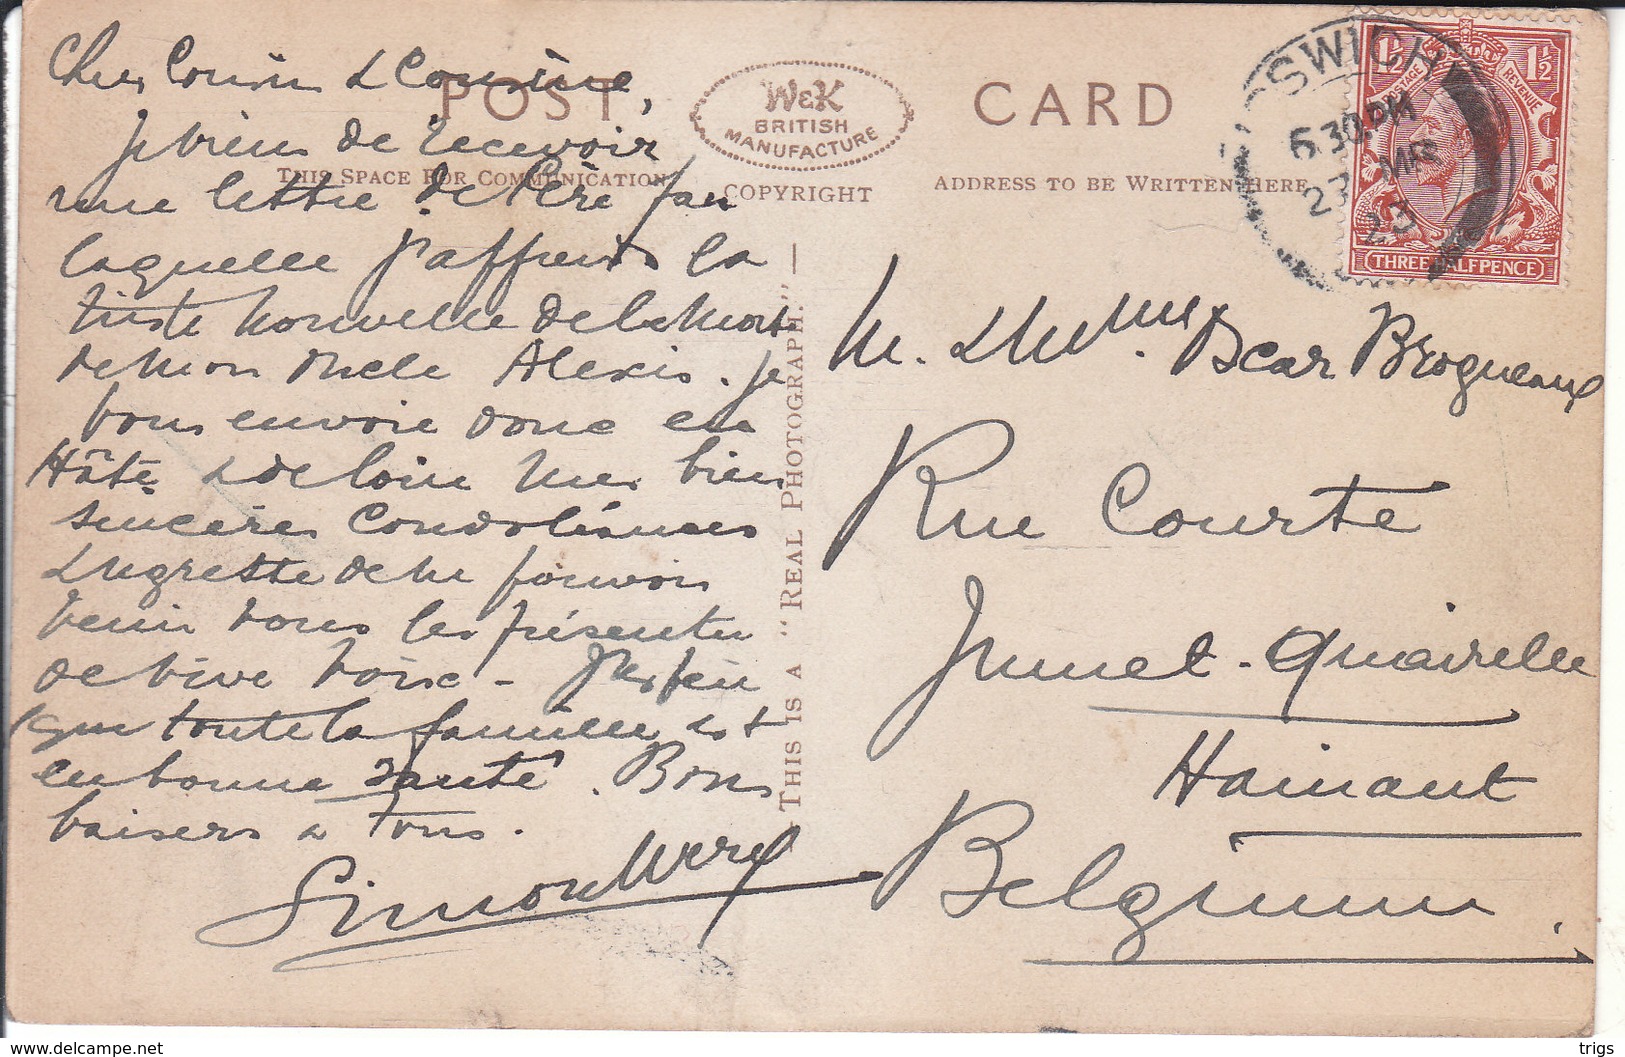 POST CARD
W&K
BRITISH
MANUFACTURE
COPYRIGHT
THIS SPACE FOR COMMUNICATION
ADDRESS TO BE WRITTEN HERE
THIS IS A "REAL PHOTOGRAPH."
Cher Cousin & Cousine,
Je viens de recevoir
une lettre de Père par
laquelle j'apprends la
triste nouvelle de la mort
de mon Oncle Alexis. Je
vous envoie donc en
Hâte & de loin mes bien
sincères Condoléances
& regrette de ne pouvoir
venir vous les présenter
de vive voix -
que toute la famille est
en bonne santé. Bons
baisers à Tous.
Simon
SWICH
6 30 PM
23 MR
POSTAGE
REVENUE
1½
1½
THREE HALFPENCE
M. & Mme Oscar Brogneaux
Rue Courte
Jumet - Quairelle
Hainaut
Belgium.
https://www.delcampe.net
trigs